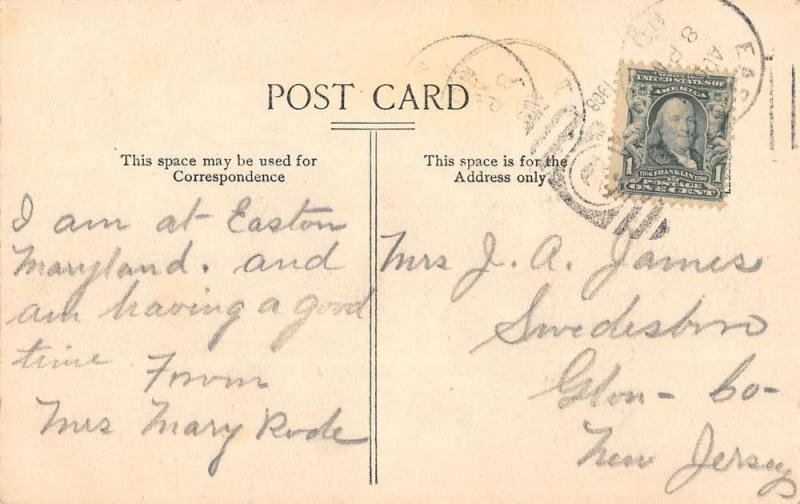 POST CARD
This space may be used for
Correspondence
This space is for the
Address only
SERIES 1902
UNITED STATES OF
AMERICA
1706 FRANKLIN 1790
POSTAGE
1 ONE CENT 1
1908
8 P
EAS
I am at Easton
Maryland. and
am having a good
time From
Mrs Mary Rode
Mrs J. A. James
Swedesboro
Glou- Co-
New Jersey